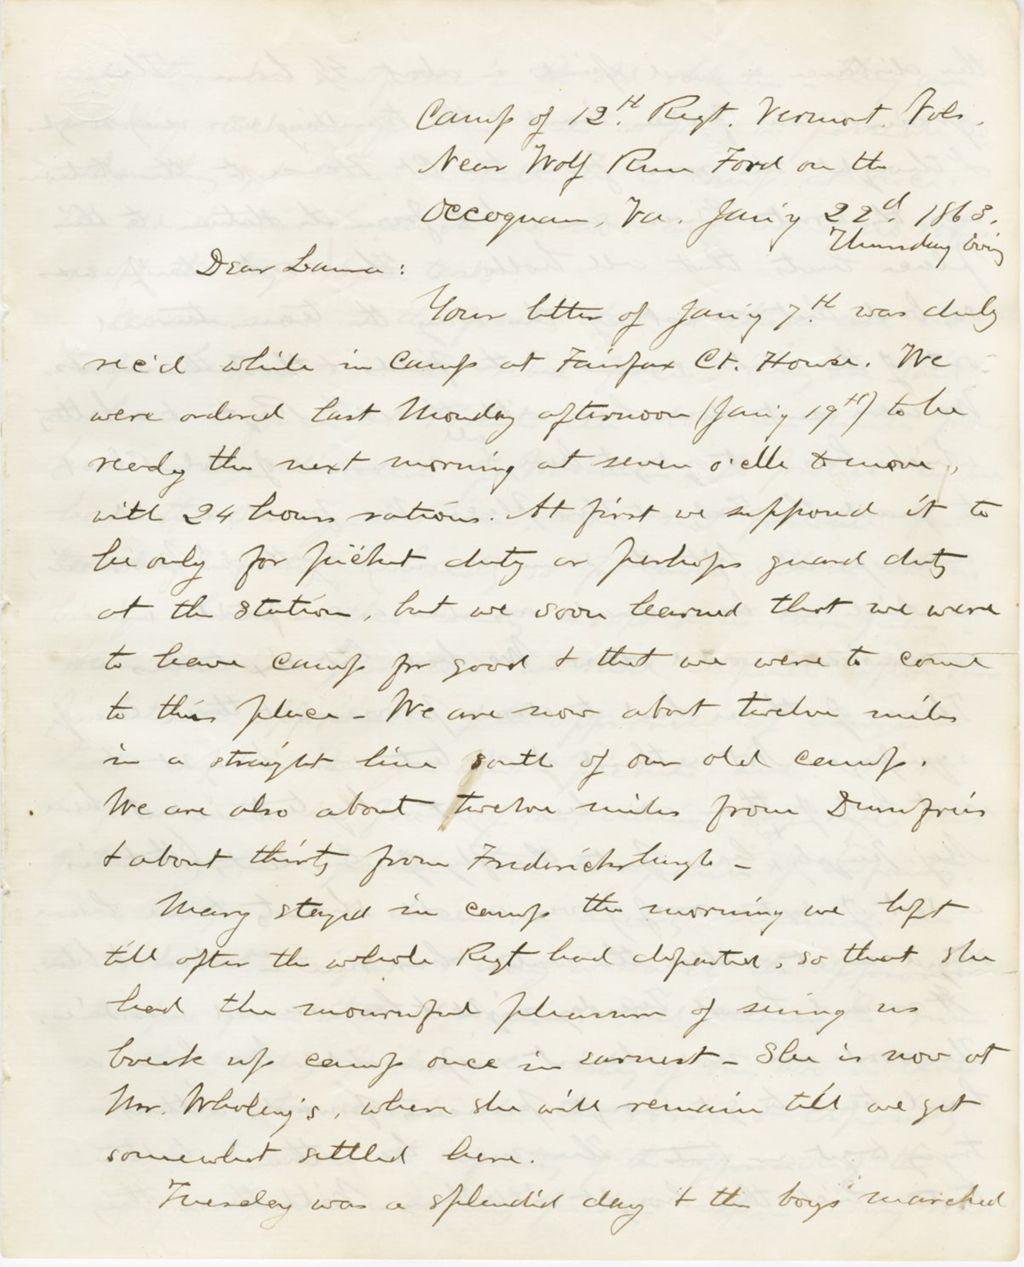 Camp of 12th Regt. Vermont. Vols.
Near Wolf Run Ford on the
Occoquan, Va. Jan'y 22d. 1863.
Thursday Evng
Dear Laura:
Your letter of Jan'y 7th. was duly
rec'd while in Camp at Fairfax Ct. House. We
were ordered last Monday afternoon (Jan'y 19th) to be
ready the next morning at seven o'clk to move,
with 24 hours rations. At first we supposed it to
be only for picket duty or perhaps guard duty
at the station, but we soon learned that we were
to leave camp for good & that we were to come
to this place - We are now about twelve miles
in a straight line south of our old camp.
We are also about twelve miles from Dumfries
& about thirty from Fredericksburgh -
Mary stayed in camp the morning we left
till after the whole Regt had departed, so that she
had the mournful pleasure of seeing us
break up camp once in earnest - She is now at
Mr. Wholey's, where she will remain till we get
somewhat settled here.
Tuesday was a splendid day & the boys marched